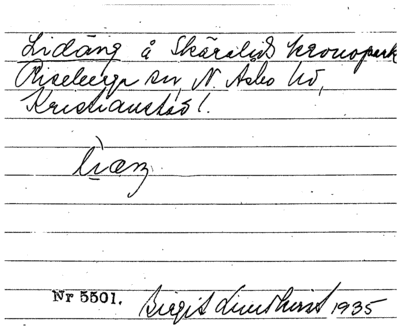 Lidäng å Skäralids kronopark
Riseberga sn, N. Åsbo hd,
Kristianstads l.
Nr 5501. Birgit Lindkvist 1935